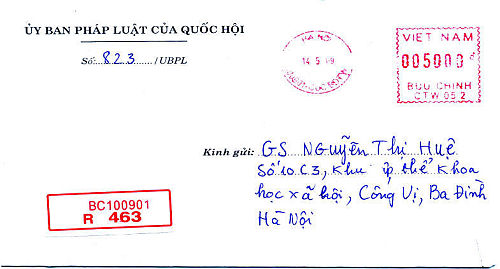 ỦY BAN PHÁP LUẬT CỦA QUỐC HỘI
Số: 823 /UBPL
HÀ NỘI
14.5.09
VIỆT NAM
005000đ
BƯU CHÍNH
CTW 052
Kính gửi: GS NGuyễn Thị Huệ
Số 10 C3, Khu tập thể Khoa
học xã hội, Cống Vị, Ba Đình
Hà Nội
BC100901
R 463